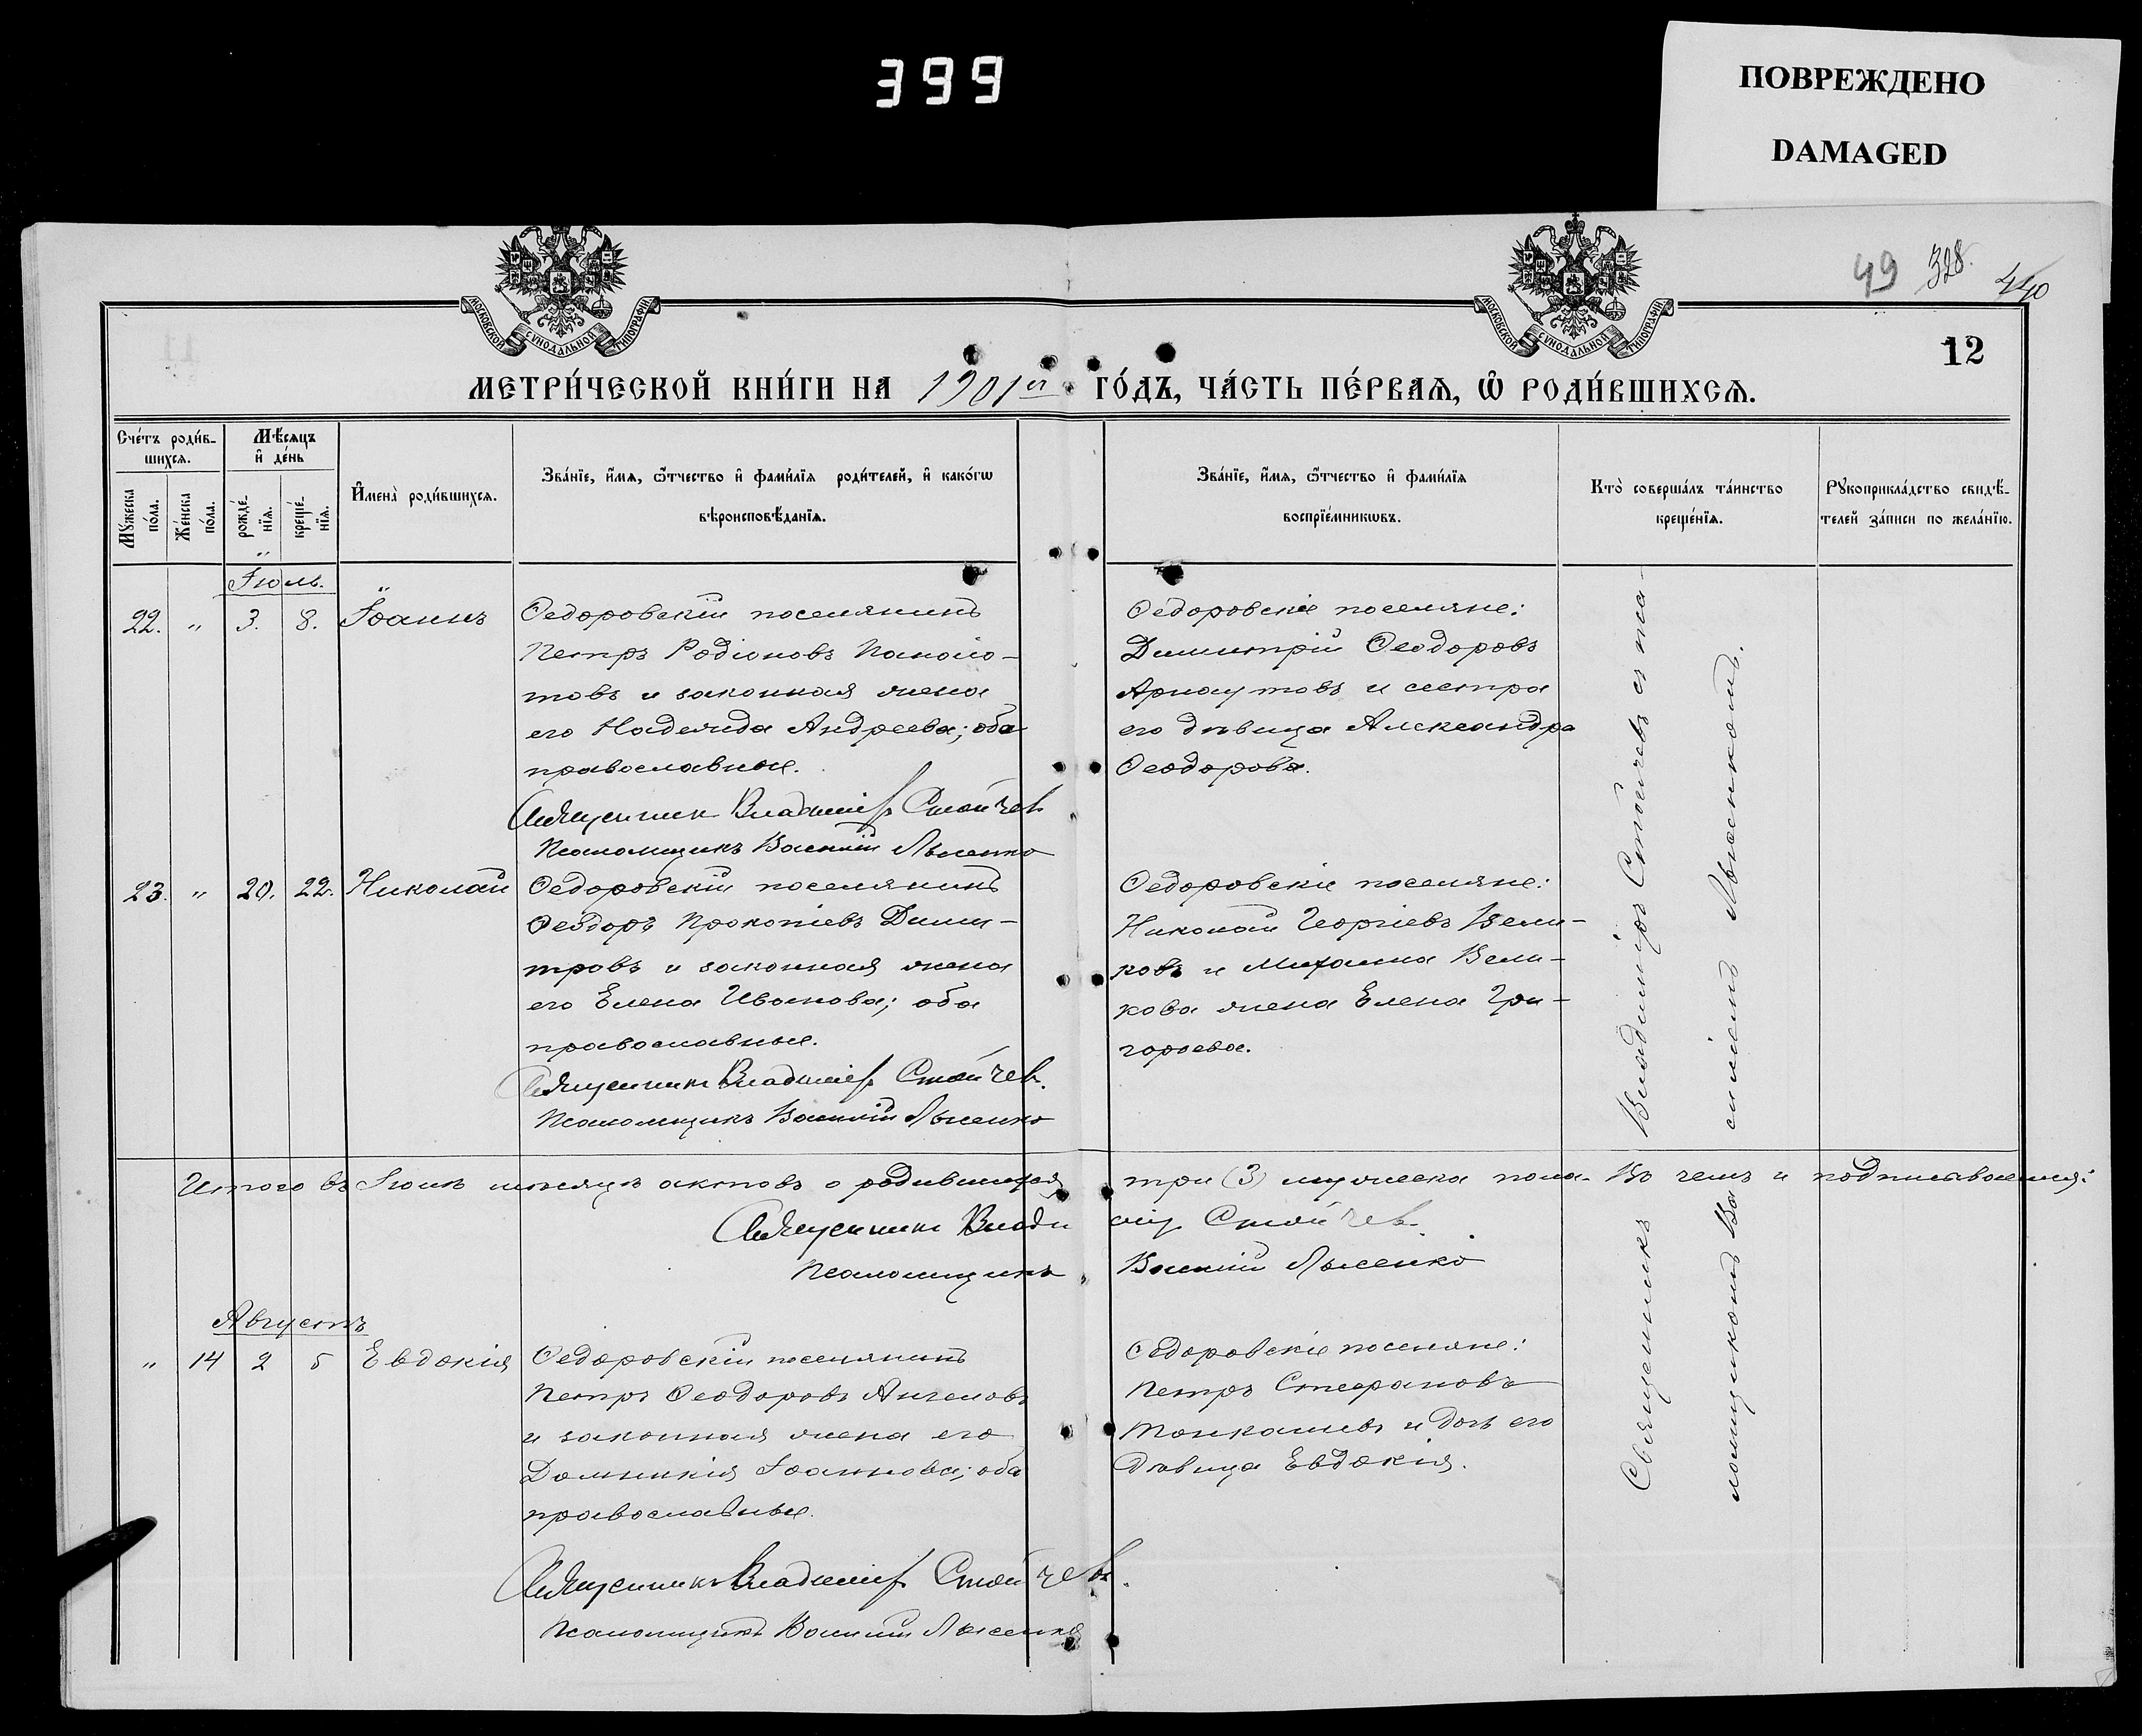 399
ПОВРЕЖДЕНО
DAMAGED
49 328. 440
МОСКОВСКОЙ СѴНОДАЛЬНОЙ ТИПОГРАФІИ
МОСКОВСКОЙ СѴНОДАЛЬНОЙ ТИПОГРАФІИ
12
МЕТРИ́ЧЕСКОЙ КНИ́ГИ НА 1901й ГО́ДЪ, ЧА́СТЬ ПЕ́РВАѦ, Ѡ҆ РОДИ́ВШИХСѦ.
Сче́тъ роди́в-
шихсѧ.
Мѣ́сѧцъ
и҆ де́нь
Мꙋжеска
по́ла.
Же́нска
по́ла.
рожде́-
нїѧ.
креще́-
нїѧ.
И҆мена̀ роди́вшихсѧ.
Зва́нїе, и҆́мѧ, ѻ҆́тчество и҆ фами́лїѧ роди́телей, и҆ како́гѡ
вѣроисповѣ́данїѧ.
Зва́нїе, и҆́мѧ, ѻ҆́тчество и҆ фами́лїѧ
воспрїе́мникѡвъ.
Кто̀ соверша́лъ та́инство
креще́нїѧ.
Рꙋкоприкла́дство свидѣ́-
телей за́писи по жела́нїю.
Іюль.
22. " 3. 8. Іоаннъ
Ѳедоровскій поселянинъ
Петръ Родіоновъ Панаіо-
товъ и законная жена
его Надежда Андреева; оба
православные.
Священник Владимір Стойчев
Псаломщикъ Василій Лысенко
Ѳедоровскіе поселяне:
Димитрій Ѳеодоровъ
Арнаутовъ и сестра
его дѣвица Александра
Ѳеодорова.
23. " 20. 22. Николай
Ѳедоровскій поселянинъ
Ѳеодоръ Прокопіевъ Дими-
тровъ и законная жена
его Елена Иванова; оба
православные.
Священник Владимір Стойчев.
Псаломщикъ Василій Лысенко
Ѳедоровскіе поселяне:
Николай Георгіевъ Вели-
ковъ и Михаила Вели-
кова жена Елена Гри-
горьева.
Итого въ Іюлѣ мѣсяцѣ актовъ о родившихся три (3) мужеска пола. Въ чемъ и подписываемся:
Священник Владимір Стойчев.
Псаломщикъ Василій Лысенко
Августъ
" 14 2 5 Евдокія
Ѳедоровскій поселянинъ
Петръ Ѳеодоровъ Ангеловъ
и законная жена его
Домникія Іоаннова; оба
православные.
Священник Владимір Стойчев.
Псаломщикъ Василій Лысенко
Ѳедоровскіе поселяне:
Петръ Стефановъ
и дочь его
дѣвица Евдокія.
Священникъ Владиміръ Стойчевъ съ пса-
ломщикомъ Василіемъ Лысенкомъ.